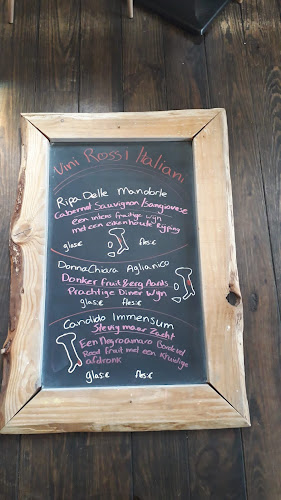 Vini Rossi Italiani
Ripa Delle Mandorle
Cabernet Sauvignon/Sangiovese
een intens fruitige wijn
met een eikenhoute Rijping
glas:€ fles:€
Donna Chiara Aglianico
Donker fruit & erg Aards
Prachtige Diner Wijn
glas:€ fles:€
Candido Immensum
Stevig maar Zacht
Een Negroamaro Bordevol
Rood fruit met een Kruidige
afdronk
glas:€ fles:€